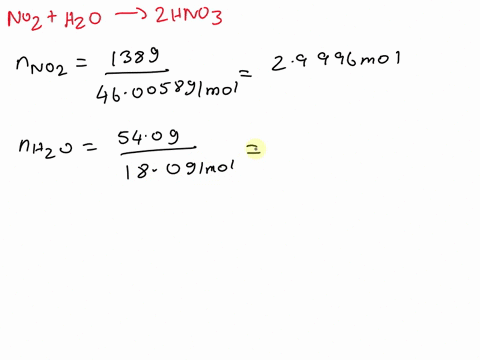 NO2 + H2O → 2HNO3
nNO2 = 138g / 46.0058g/mol = 2.9996mol
nH2O = 54.0g / 18.0g/mol =